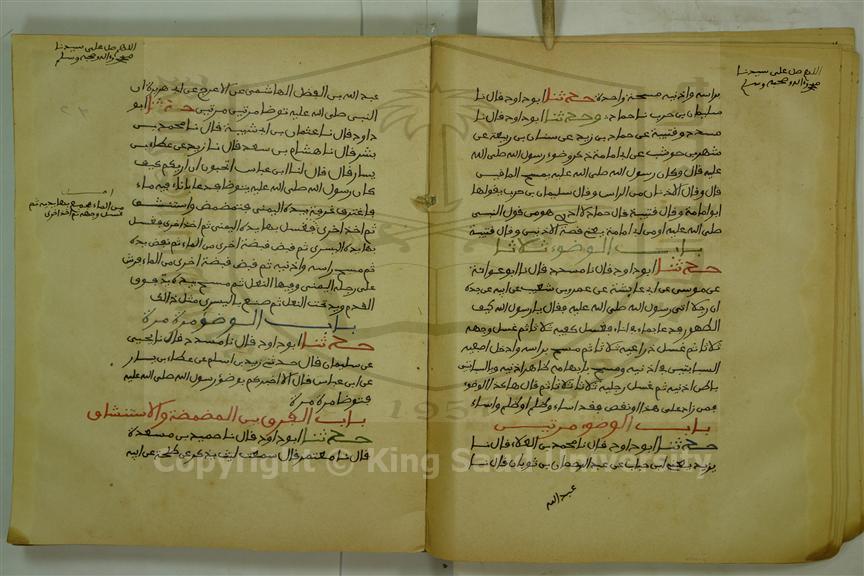 اللهم صل على سيدنا
محمد واله وصحبه وسلم
براسه واذنيه مسحة واحدة حدثنا ابو داود قال نا
سليمان بن حرب نا حماد ح وحدثنا ابو داود قال نا
مسدد وقتيبة عن حماد بن زيد عن سنان بن ربيعة عن
شهر بن حوشب عن ابي امامة ذكر وضوء رسول الله صلى الله
عليه قال وكان رسول الله صلى الله عليه يمسح الماقيين
قال وقال الاذنان من الراس وقال سليمان بن حرب يقولها
ابو امامة وقال قتيبة قال حماد لا ادري هو من قول النبي
صلى الله عليه او من ابي امامة يعني قصة الاذنين وقال قتيبة
باب الوضوء ثلاثا
حدثنا ابو داود قال نا مسدد قال نا ابو عوانة
عن موسى بن ابي عايشة عن عمرو بن شعيب عن ابيه عن جده
ان رجلا اتى رسول الله صلى الله عليه فقال يا رسول الله كيف
الطهور فدعا بماء في اناء فغسل كفيه ثلاثا ثم غسل وجهه
ثلاثا ثم غسل ذراعيه ثلاثا ثم مسح براسه وادخل اصبعيه
السباحتين في اذنيه ومسح بابهاميه ظاهر اذنيه وبالسباحتين
باطن اذنيه ثم غسل رجليه ثلاثا ثلاثا ثم قال هكذا الوضوء
فمن زاد على هذا او نقص فقد اساء وظلم او ظلم واساء
باب الوضوء مرتين
حدثنا ابو داود قال نا محمد بن العلاء قال نا
يزيد يعني ابن حباب عن عبد الرحمان بن ثوبان قال نا
عبد الله
اللهم صل على سيدنا
محمد واله وصحبه وسلم
عبد الله بن الفضل الهاشمي عن الاعرج عن ابي هريرة ان
النبي صلى الله عليه توضا مرتين مرتين حدثنا ابو
داود قال نا عثمان بن ابي شيبة قال نا محمد بن
بشر قال نا هشام بن سعد قال نا زيد عن عطاء بن
يسار قال قال لنا ابن عباس اتحبون ان اريكم كيف
كان رسول الله صلى الله عليه يتوضا فدعا باناء فيه ماء
فاغترف غرفة بيده اليمنى فتمضمض واستنشق
ثم اخذ اخرى فغسل بها يده اليمنى ثم اخذ اخرى فغسل
بها يده اليسرى ثم قبض قبضة اخرى من الماء ثم نفض يده
ثم مسح راسه واذنيه ثم قبض قبضة اخرى من الماء فرش
على رجله اليمنى وفيها النعل ثم مسح بيديه يد فوق
القدم ويد تحت النعل ثم صنع باليسرى مثل ذلك
من الماء فجمع بها يديه ثم
غسل وجهه ثم اخذ اخرى
باب الوضوء مرة مرة
حدثنا ابو داود قال نا مسدد قال نا يحيى
عن سليمان قال حدثني زيد بن اسلم عن عطاء بن يسار
عن ابن عباس قال الا اخبركم بوضوء رسول الله صلى الله عليه
فتوضا مرة مرة
باب الفرق بين المضمضة والاستنشاق
حدثنا ابو داود قال نا حميد بن مسعدة
قال نا معتمر قال سمعت ليث يذكر عن طلحة عن ابيه
1957
Copyright © King Saud University